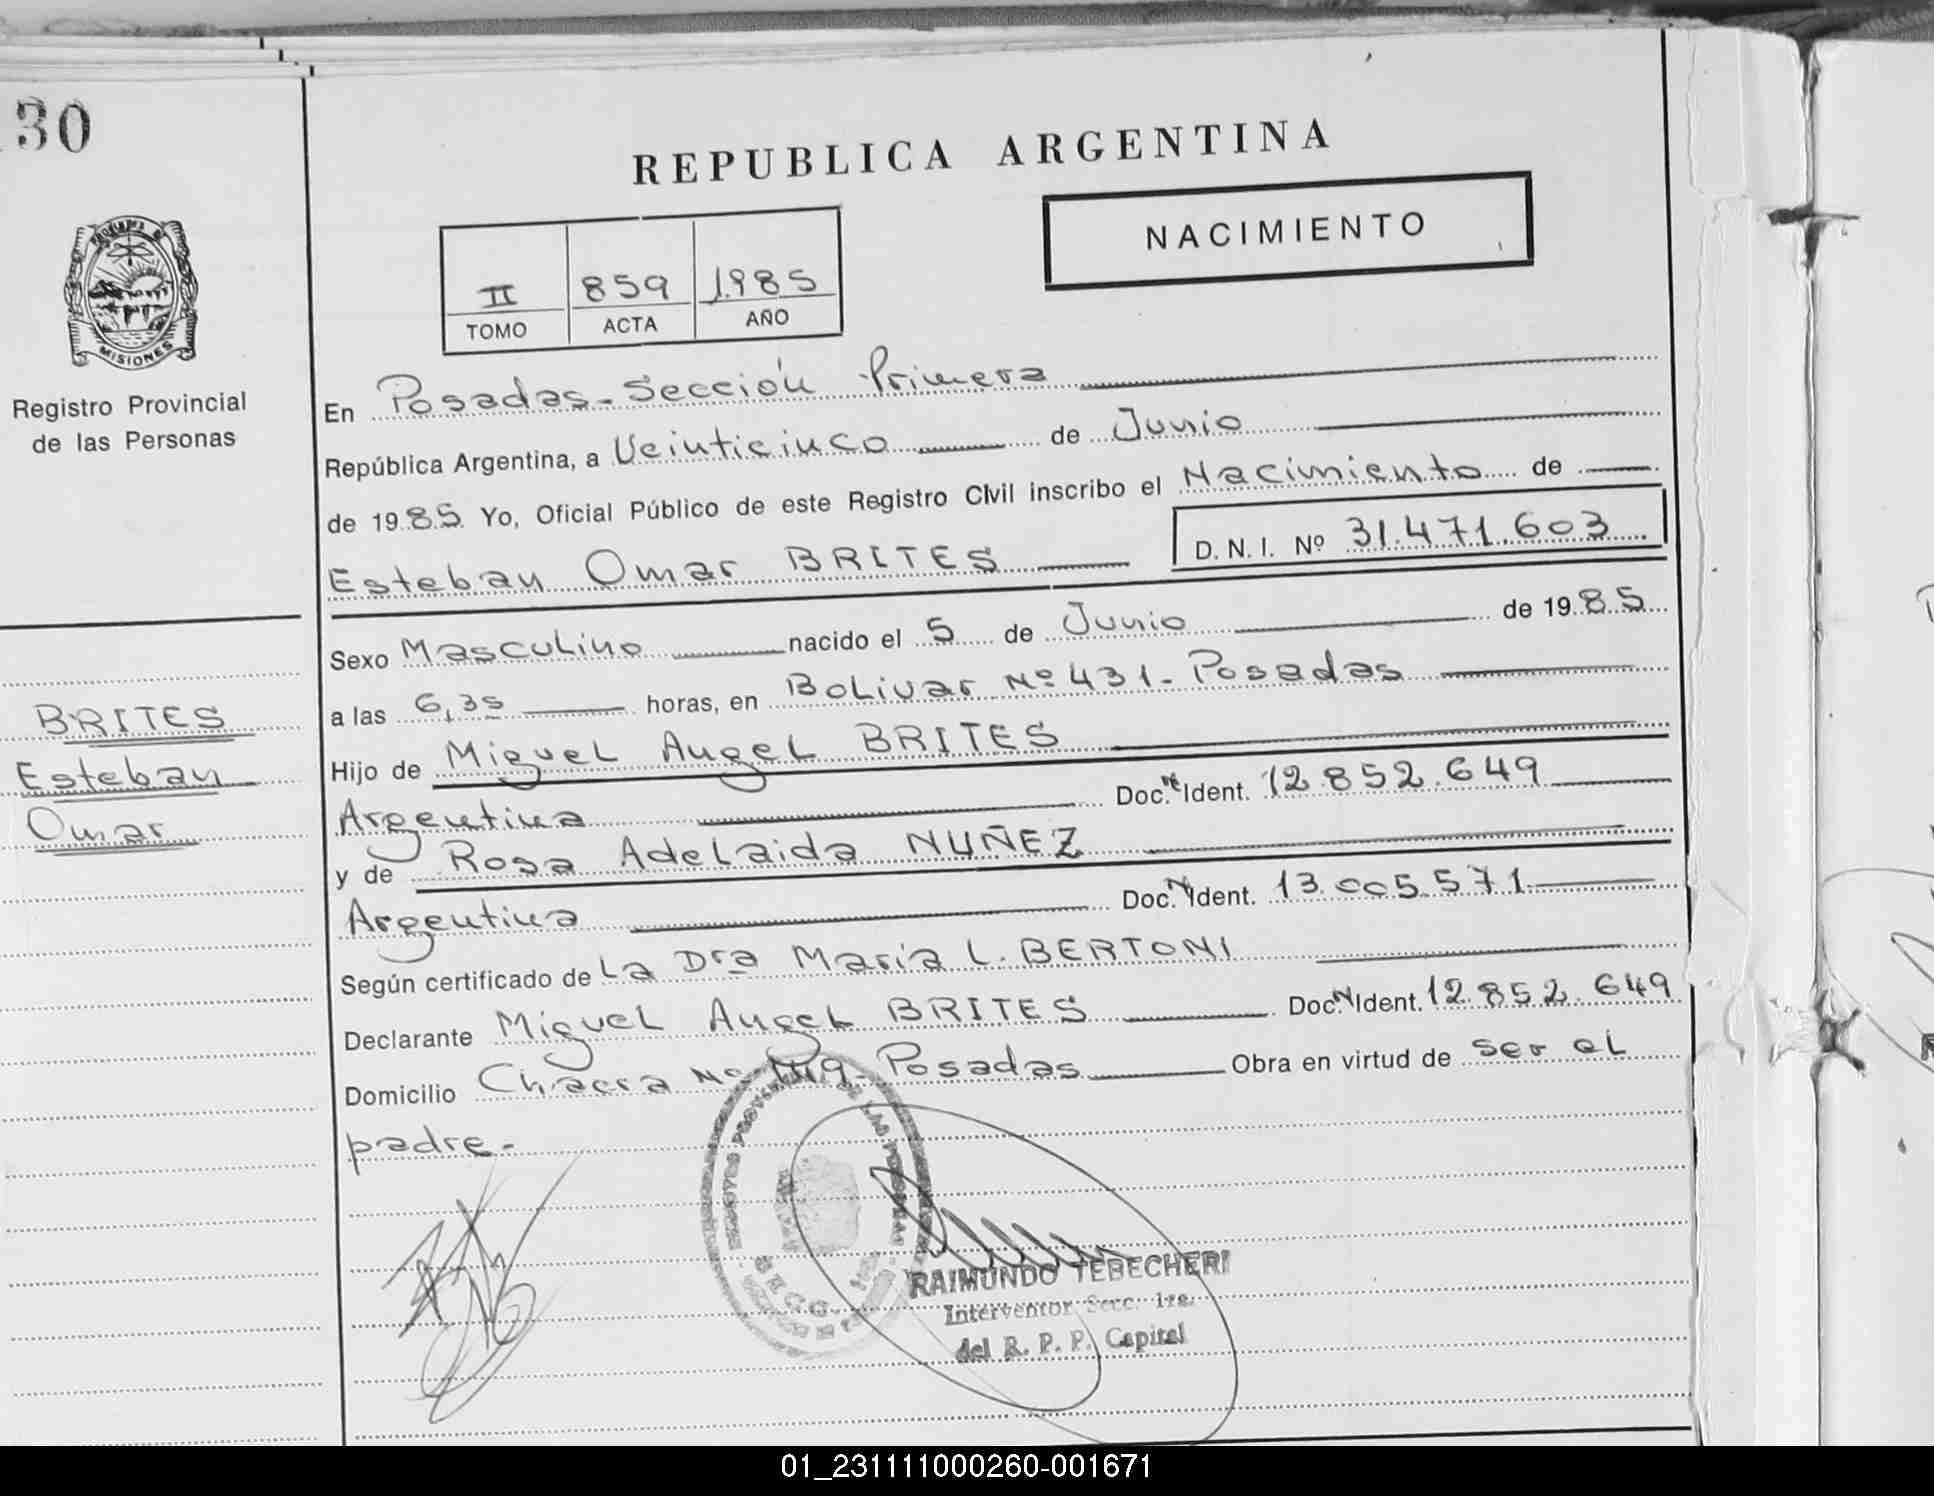 30
PROVINCIA D
MISIONES
Registro Provincial
de las Personas
BRITES
Esteban
Omar
REPUBLICA ARGENTINA
NACIMIENTO
II 859 1985
TOMO ACTA AÑO
En Posadas-Sección Primera
República Argentina, a Veinticinco de Junio
de 1985 Yo, Oficial Público de este Registro Civil inscribo el Nacimiento de
Esteban Omar BRITES D.N.I. Nº 31.471.603
Sexo Masculino nacido el 5 de Junio de 1985
a las 6,35 horas, en Bolivar Nº 431-Posadas
Hijo de Miguel Angel BRITES
Argentina Doc. Nº Ident. 12.852.649
y de Rosa Adelaida NUÑEZ
Argentina Doc. N Ident. 13.005.571
Según certificado de La Dra María L. BERTONI
Declarante Miguel Angel BRITES Doc. N Ident. 12.852.649
Domicilio Chacra Nº Posadas Obra en virtud de ser el
padre-
RAIMUNDO TEBECHERI
Interventor Secc. 1ra.
del R. P. P. Capital
01_231111000260-001671